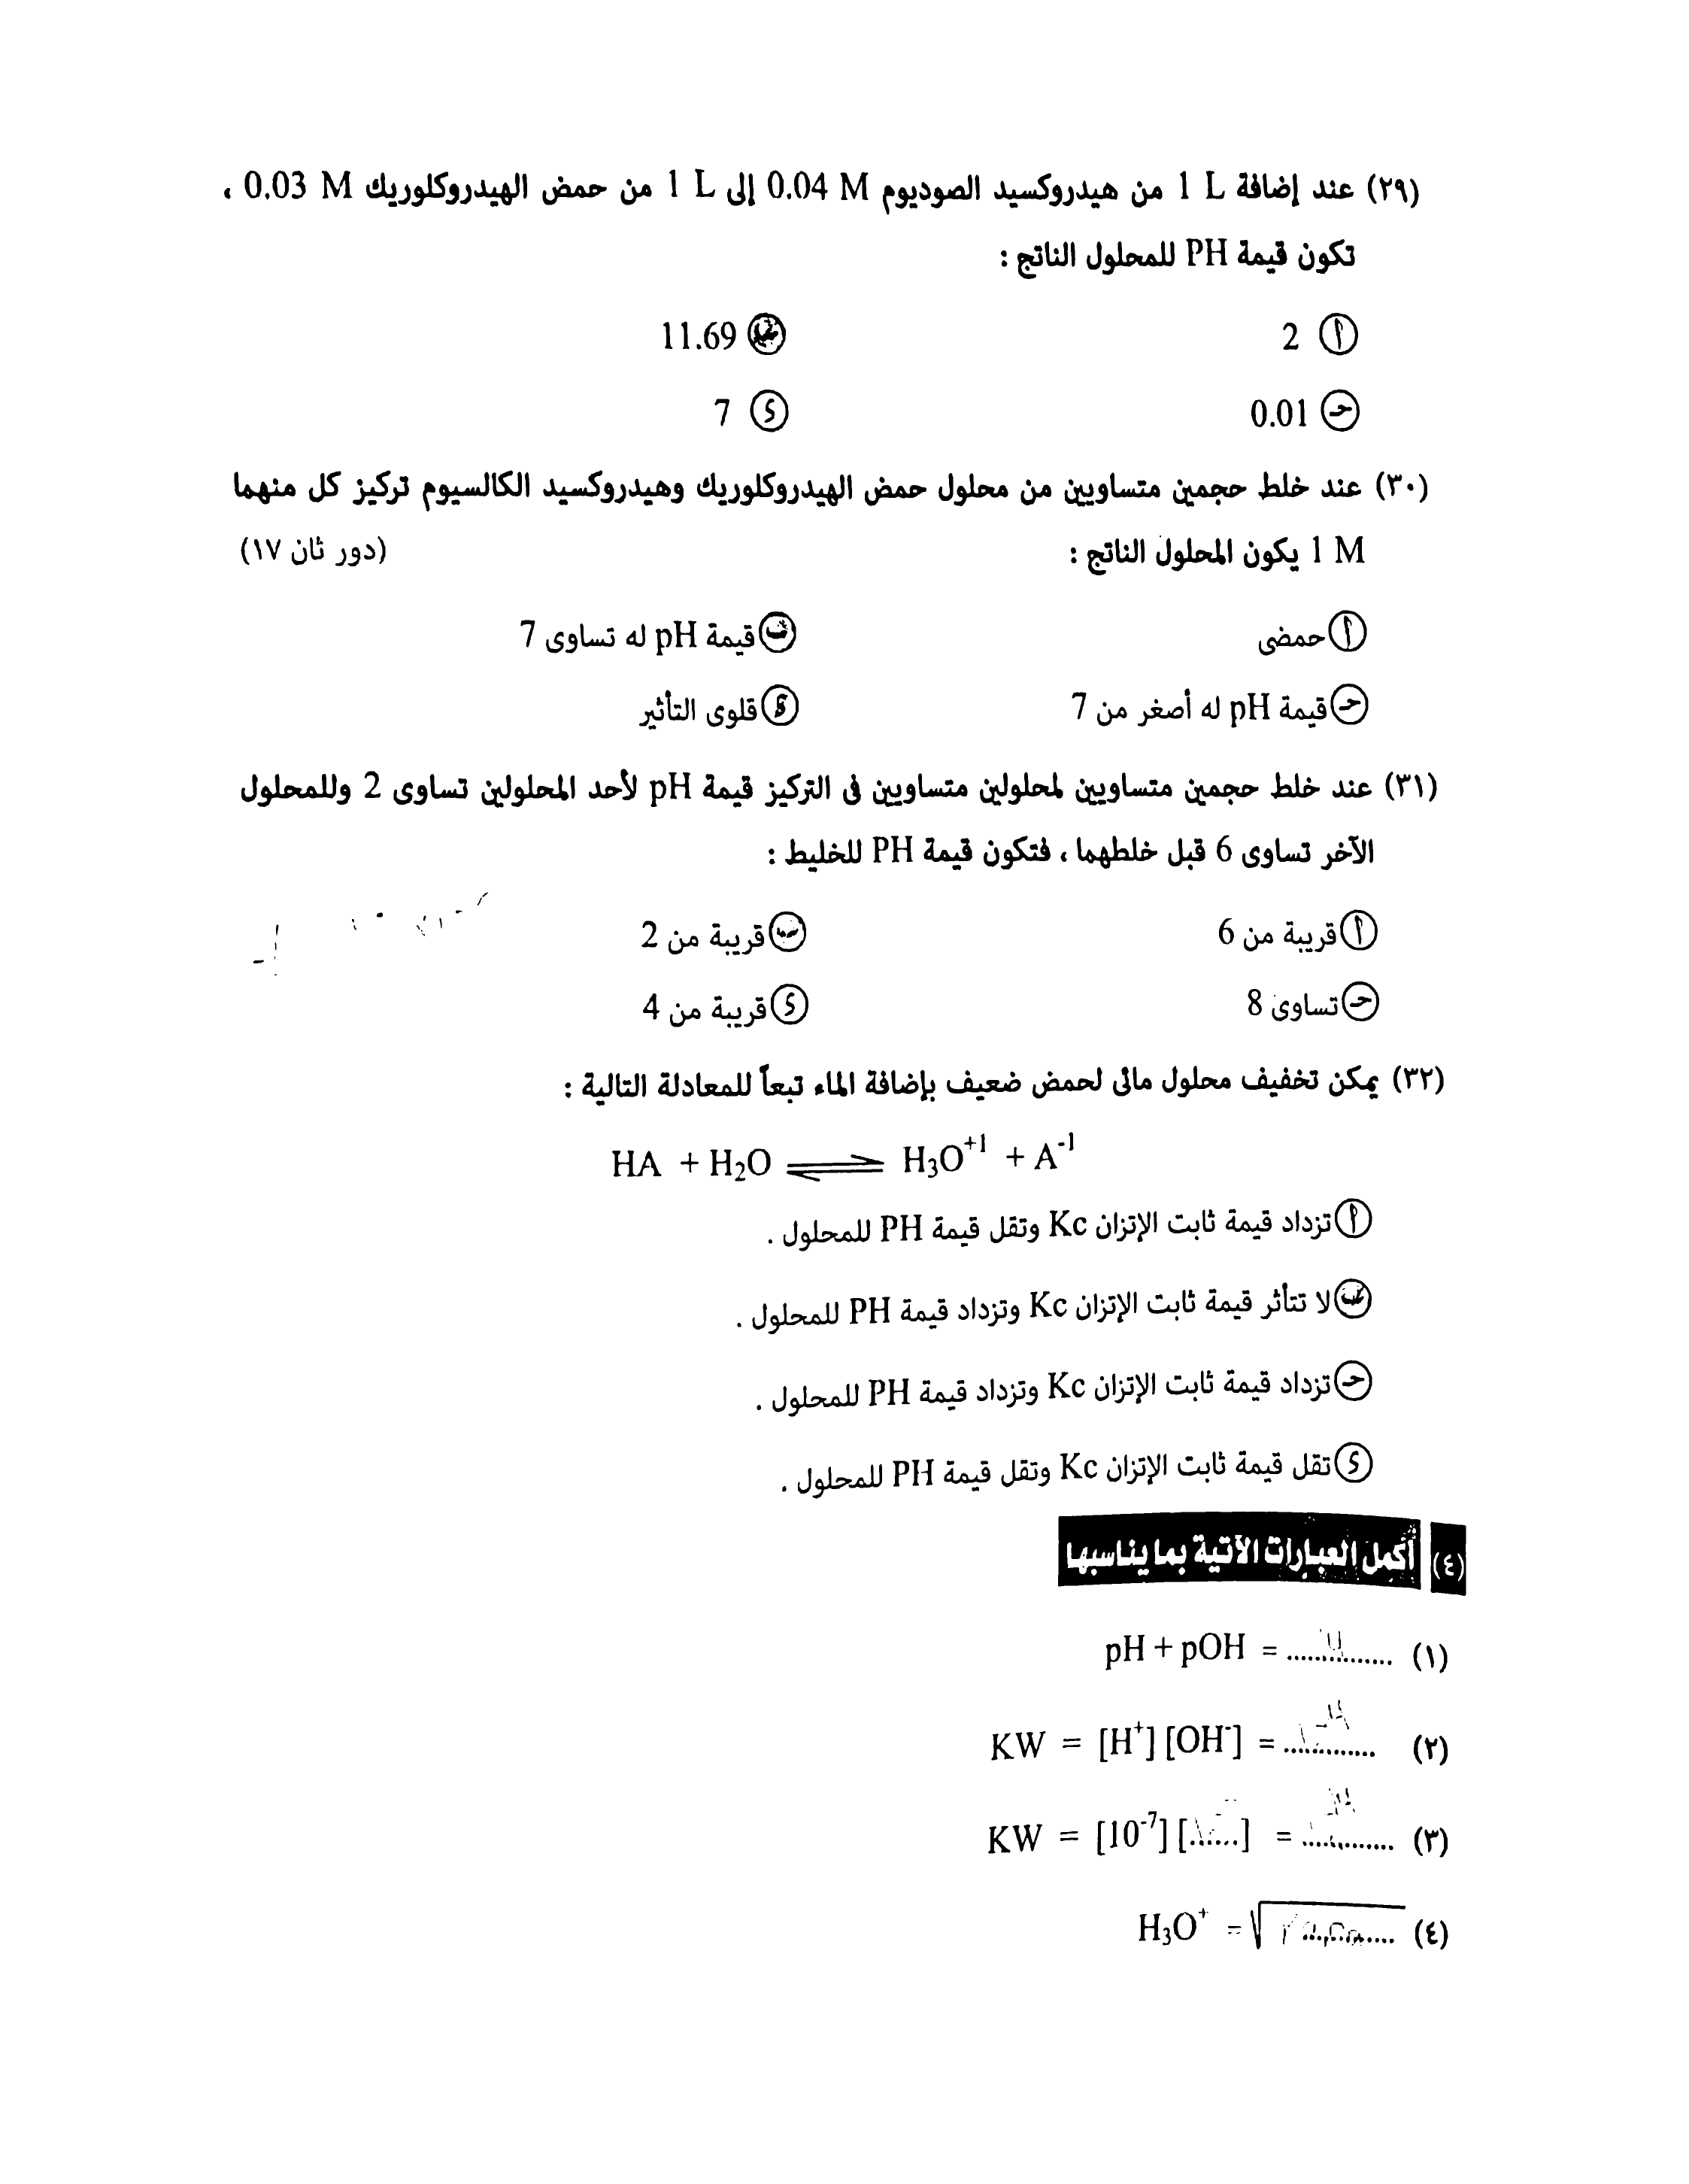 (٢٩) عند إضافة 1 L من هيدروكسيد الصوديوم 0.04 M إلى 1 L من حمض الهيدروكلوريك 0.03 M ،
تكون قيمة PH للمحلول الناتج :
أ 2 11.69
حـ 0.01 د 7
(٣٠) عند خلط حجمين متساويين من محلول حمض الهيدروكلوريك وهيدروكسيد الكالسيوم تركيز كل منهما
1 M يكون المحلول الناتج : (دور ثان ١٧)
أ حمضى ب قيمة pH له تساوى 7
حـ قيمة pH له أصغر من 7 د قلوى التأثير
(٣١) عند خلط حجمين متساويين لمحلولين متساويين فى التركيز قيمة pH لأحد المحلولين تساوى 2 وللمحلول
الآخر تساوى 6 قبل خلطهما ، فتكون قيمة PH للخليط :
أ قريبة من 6 ب قريبة من 2
حـ تساوى 8 د قريبة من 4
(٣٢) يمكن تخفيف محلول مائى لحمض ضعيف بإضافة الماء تبعاً للمعادلة التالية :
HA + H₂O ⇌ H₃O⁺¹ + A⁻¹
أ تزداد قيمة ثابت الإتزان Kc وتقل قيمة PH للمحلول .
ب لا تتأثر قيمة ثابت الإتزان Kc وتزداد قيمة PH للمحلول .
حـ تزداد قيمة ثابت الإتزان Kc وتزداد قيمة PH للمحلول .
د تقل قيمة ثابت الإتزان Kc وتقل قيمة PH للمحلول .
(٤) أكمل العبارات الآتية بما يناسبها
(١) pH + pOH = ...............
(٢) KW = [H⁺] [OH⁻] = .............
(٣) KW = [10⁻⁷] [.......] = .............
(٤) H₃O⁺ = √.............